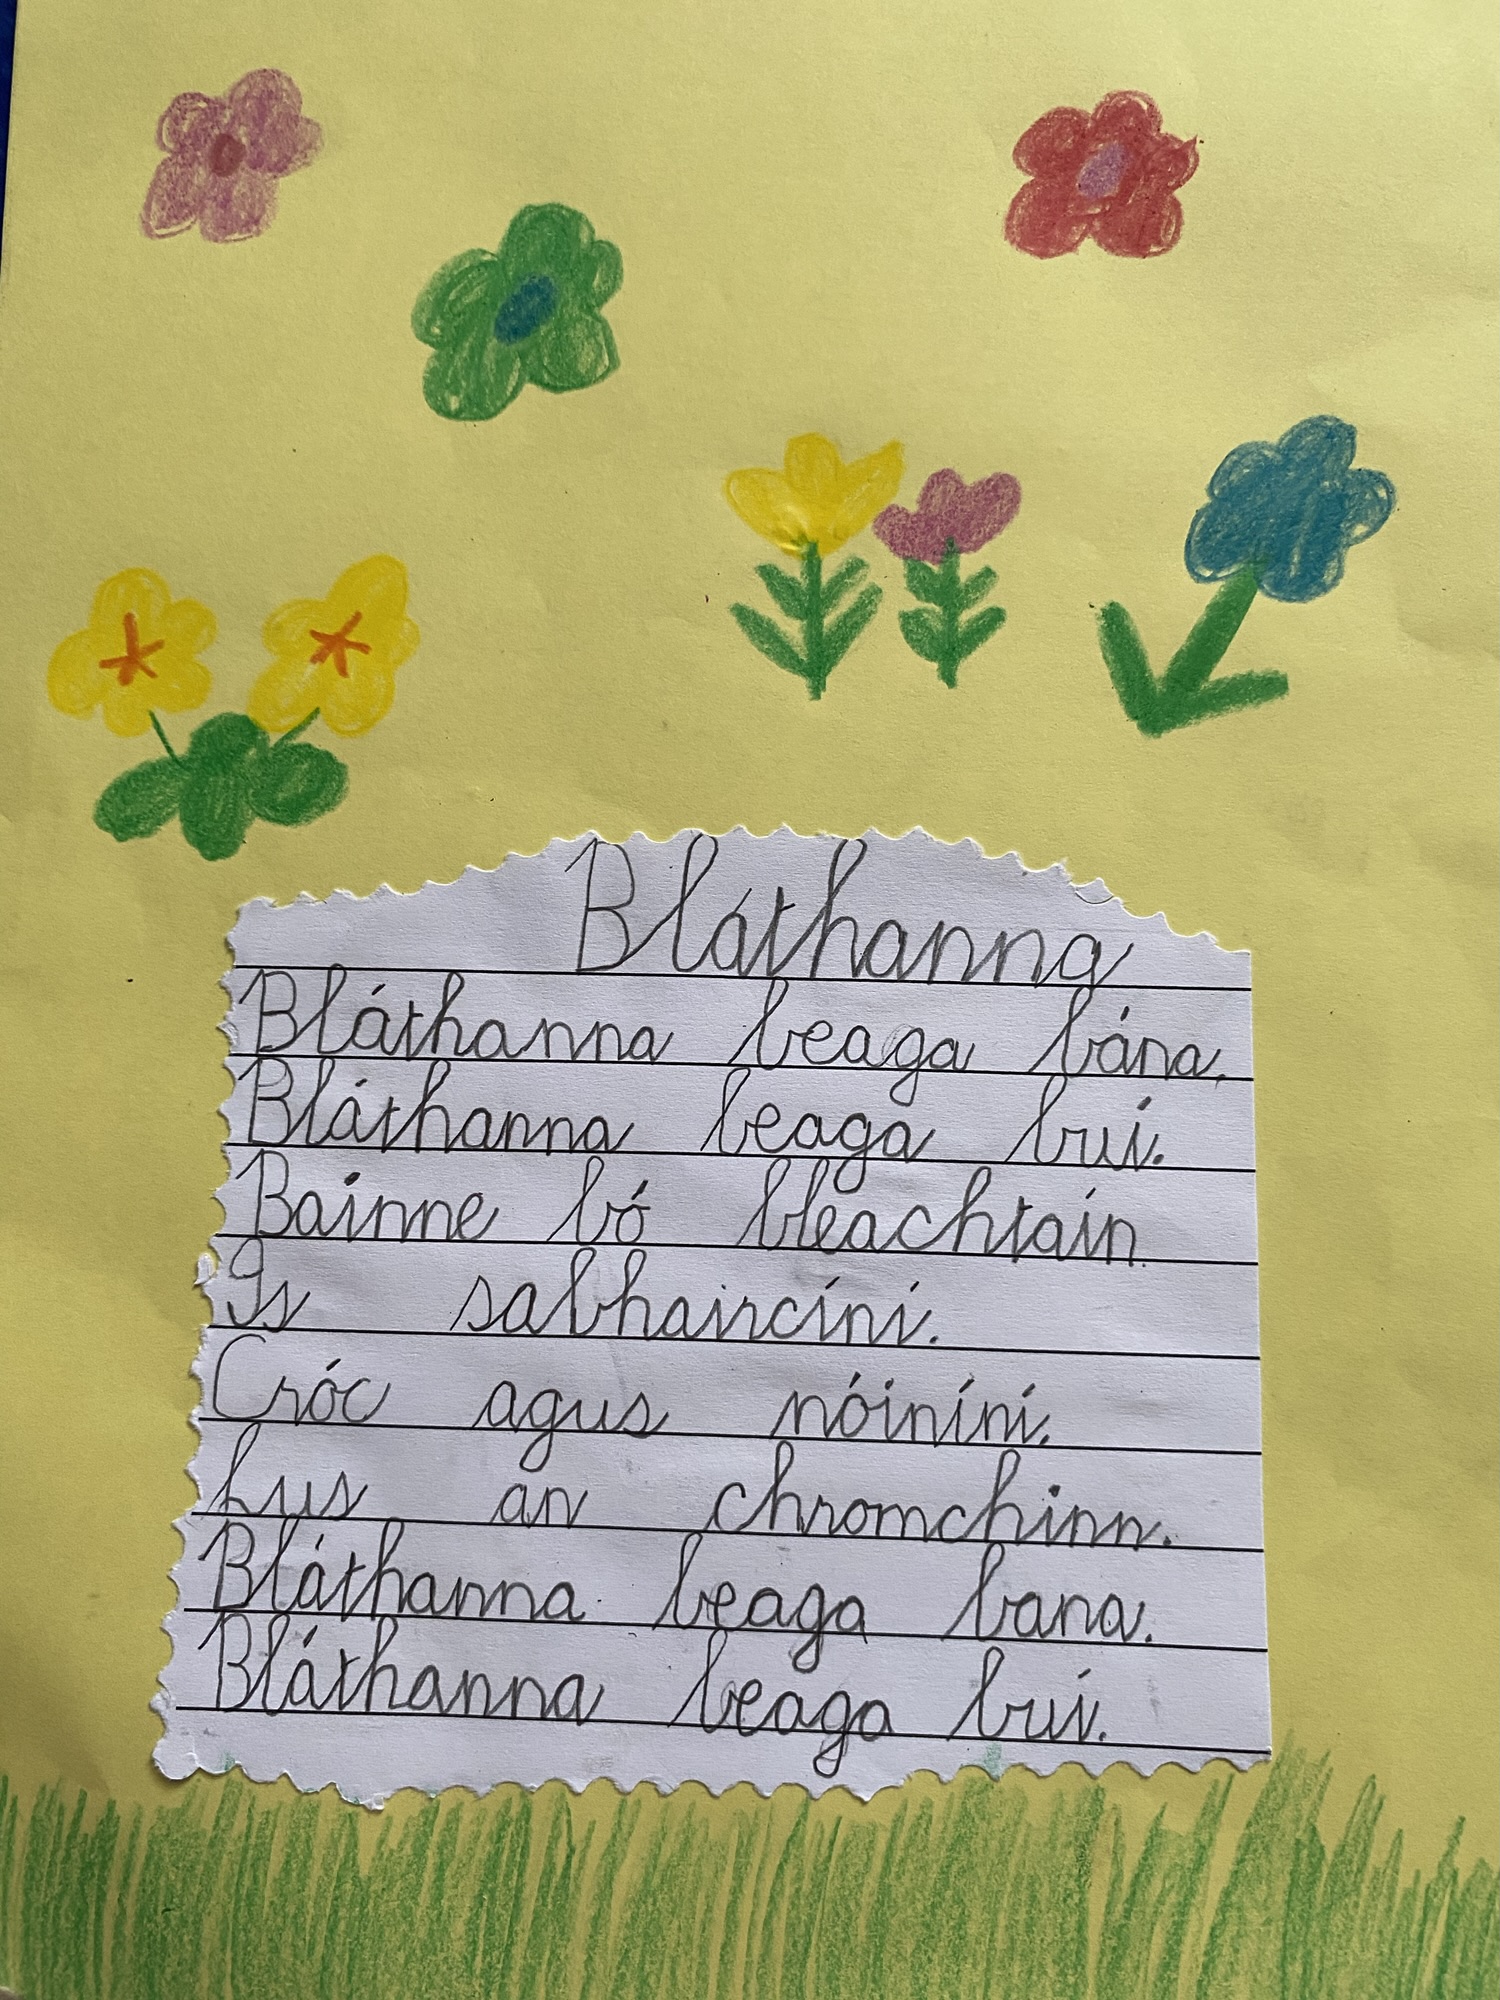 Bláthanna
Bláthanna beaga bána,
Bláthanna beaga buí.
Bainne bó bleachtain
Is sabhaircíní.
Cróc agus nóiníní.
Lus an chromchinn.
Bláthanna beaga bana.
Bláthanna beaga buí.